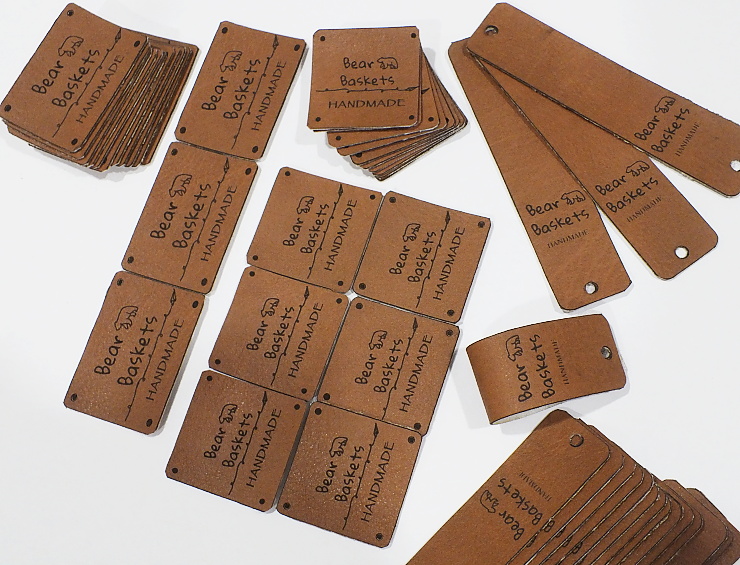 Bear
Baskets
HANDMADE
Bear
Baskets
HANDMADE
Bear
Baskets
HANDMADE
Bear
Baskets
HANDMADE
Bear
Baskets
HANDMADE
Bear
Baskets
HANDMADE
Bear
Baskets
HANDMADE
Bear
Baskets
HANDMADE
Bear
Baskets
HANDMADE
Bear
Baskets
HANDMADE
Bear
Baskets
HANDMADE
Bear
Baskets
HANDMADE
Bear
Baskets
HANDMADE
Bear
Baskets
HANDMADE
Bear
Baskets
HANDMADE
Bear
Baskets
HANDMADE